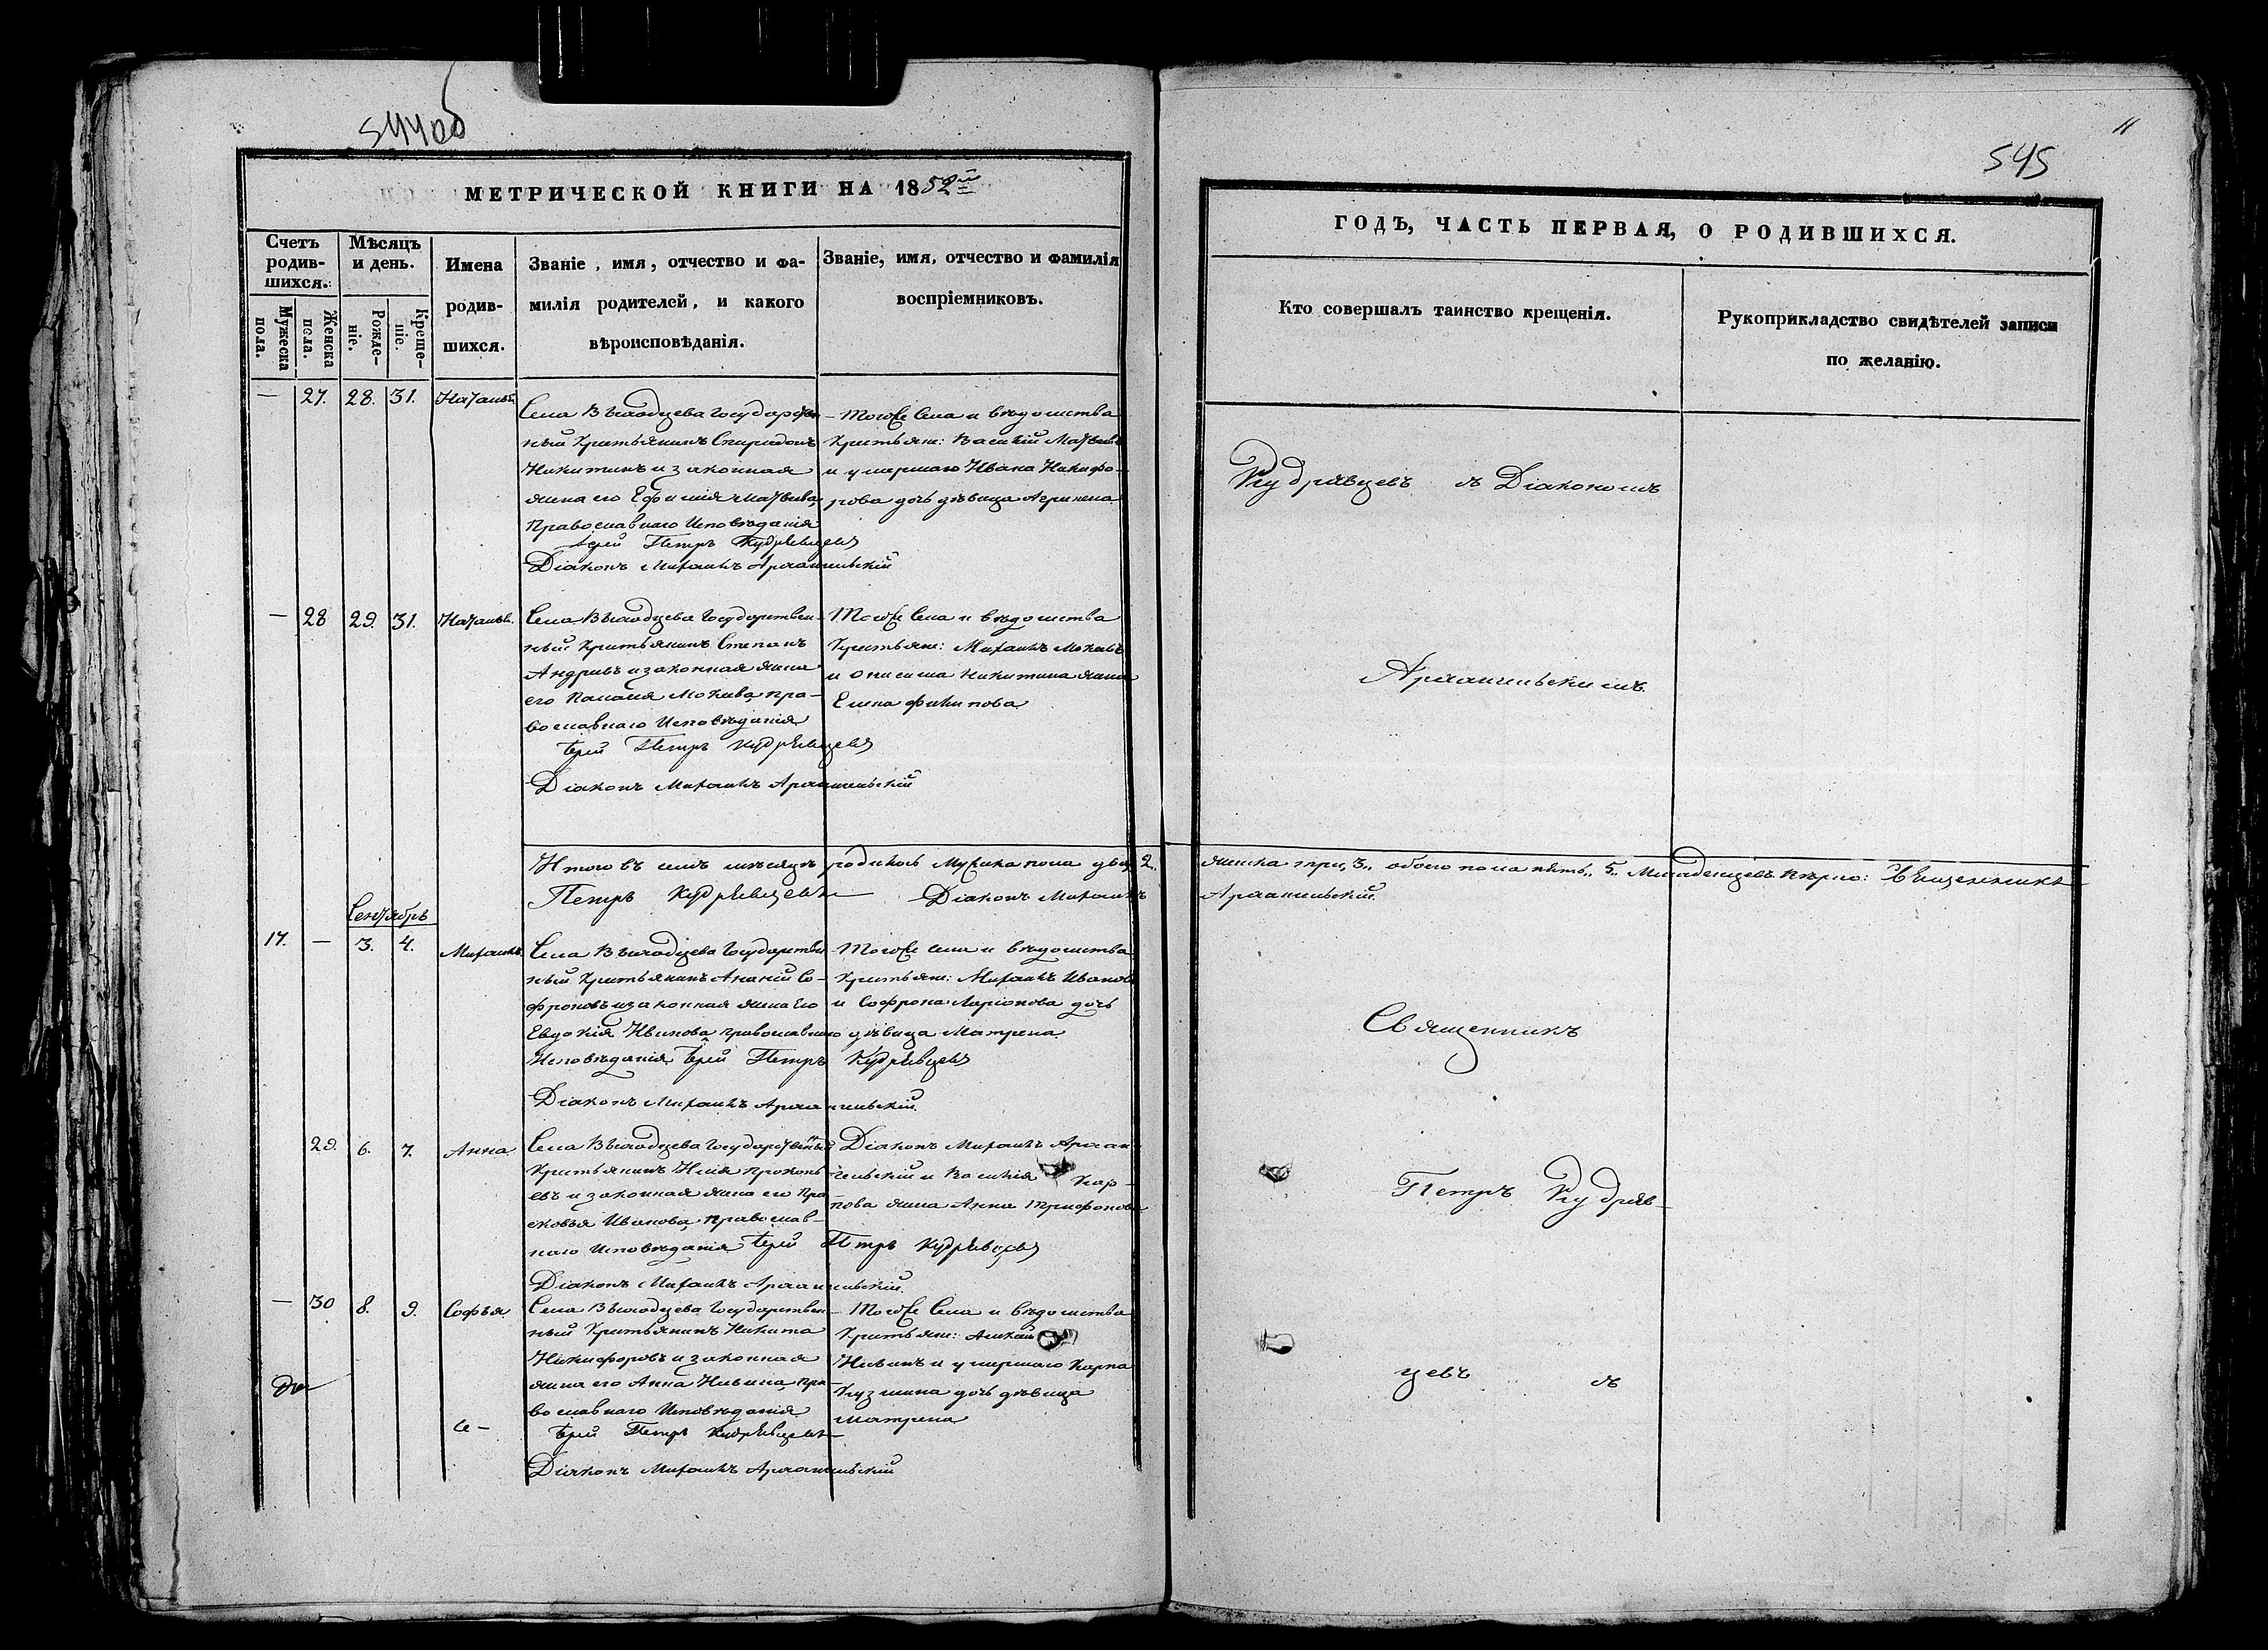 544об
МЕТРИЧЕСКОЙ КНИГИ НА 1852й
Счетъ родив-шихся.
Мѣсяцъ и день.
Имена родив-шихся.
Званіе, имя, отчество и фа-
милія родителей, и какого
вѣроисповѣданія.
Званіе, имя, отчество и фамилія
воспріемниковъ.
Мужеска пола.
Женска пола.
Рожде-ніе.
Креще-ніе.
— 27. 28. 31.
Села государствен-
ный Крестьянинъ Спиридонъ
Никитинъ и законная
жена его Ефимія Матвѣева,
Православнаго Исповѣданія
Іерей Петръ Кудрявцевъ
Діаконъ Михаилъ Архангельскій
Тогоже Села и вѣдомства
Крестьяне: Василій
и умершаго Ивана Никифо-
рова дочь дѣвица Агрипена
— 28 29. 31.
Села Государствен-
ный Крестьянинъ Степанъ
Андреевъ и законная жена
его Мокѣева, пра-
вославнаго Исповѣданія
Іерей Петръ Кудрявцевъ
Діаконъ Михаилъ Архангельскій
Тогоже Села и вѣдомства
Крестьяне: Михаилъ Мокѣевъ
и Никитина жена
Елена Филипова
Итого въ семъ мѣсяцѣ родилось Мужеска пола два, 2.
Петръ Кудрявцевъ Діаконъ Михаилъ
Сентябрь
17. — 3. 4. Михаилъ.
Села Государствен
ный Крестьянинъ Ананій Со-
фроновъ и законная жена его
Евдокія Иванова, православнаго
Исповѣданія Іерей Петръ Кудрявцевъ
Діаконъ Михаилъ Архангельскій.
Тогоже села и вѣдомства
Крестьяне: Михаилъ Ивановъ
и Софрона Ларіонова дочь
дѣвица Матрена
29. 6. 7. Анна.
Села Государственный
Крестьянинъ Илія Прокопь
евъ и законная жена его Пра
сковья Иванова, Православ-
наго Исповѣданія Іерей Петръ Кудрявцевъ
Діаконъ Михаилъ Архангельскій.
Діаконъ Михаилъ Архан
гельскій и Василія Кар-
пова жена Анна Трифонова
— 30 8. 9. Софья.
Села Государствен
ный Крестьянинъ Никита
Никифоровъ и законная
жена его Анна Ильина, пра
вославнаго Исповѣданія
Іерей Петръ Кудрявцевъ
Діаконъ Михаилъ Архангельскій
Тогоже Села и вѣдомства
Крестьяне:
и умершаго Карпа
Кузмина дочь дѣвица
Матрена
11
545
ГОДЪ, ЧАСТЬ ПЕРВАЯ, О РОДИВШИХСЯ.
Кто совершалъ таинство крещенія.
Рукоприкладство свидѣтелей записи
по желанію.
Кудрявцевъ съ Діакономъ
Архангельскимъ.
женска три, 3., обоего пола пять, 5. Младенцевъ. Священникъ
Архангельскій.
Священникъ
Петръ Кудряв-
цевъ съ